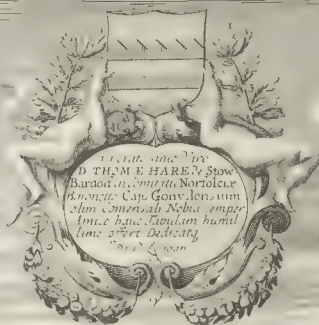 Vire
D THOMÆ HARE De Stow
Bardolf in Comit tu Norfolciæ
Baronetto Cap Gonv lensium
olim Comensali Nobili semper
Amico hanc Tabulam humil
lime offert Dedicatq